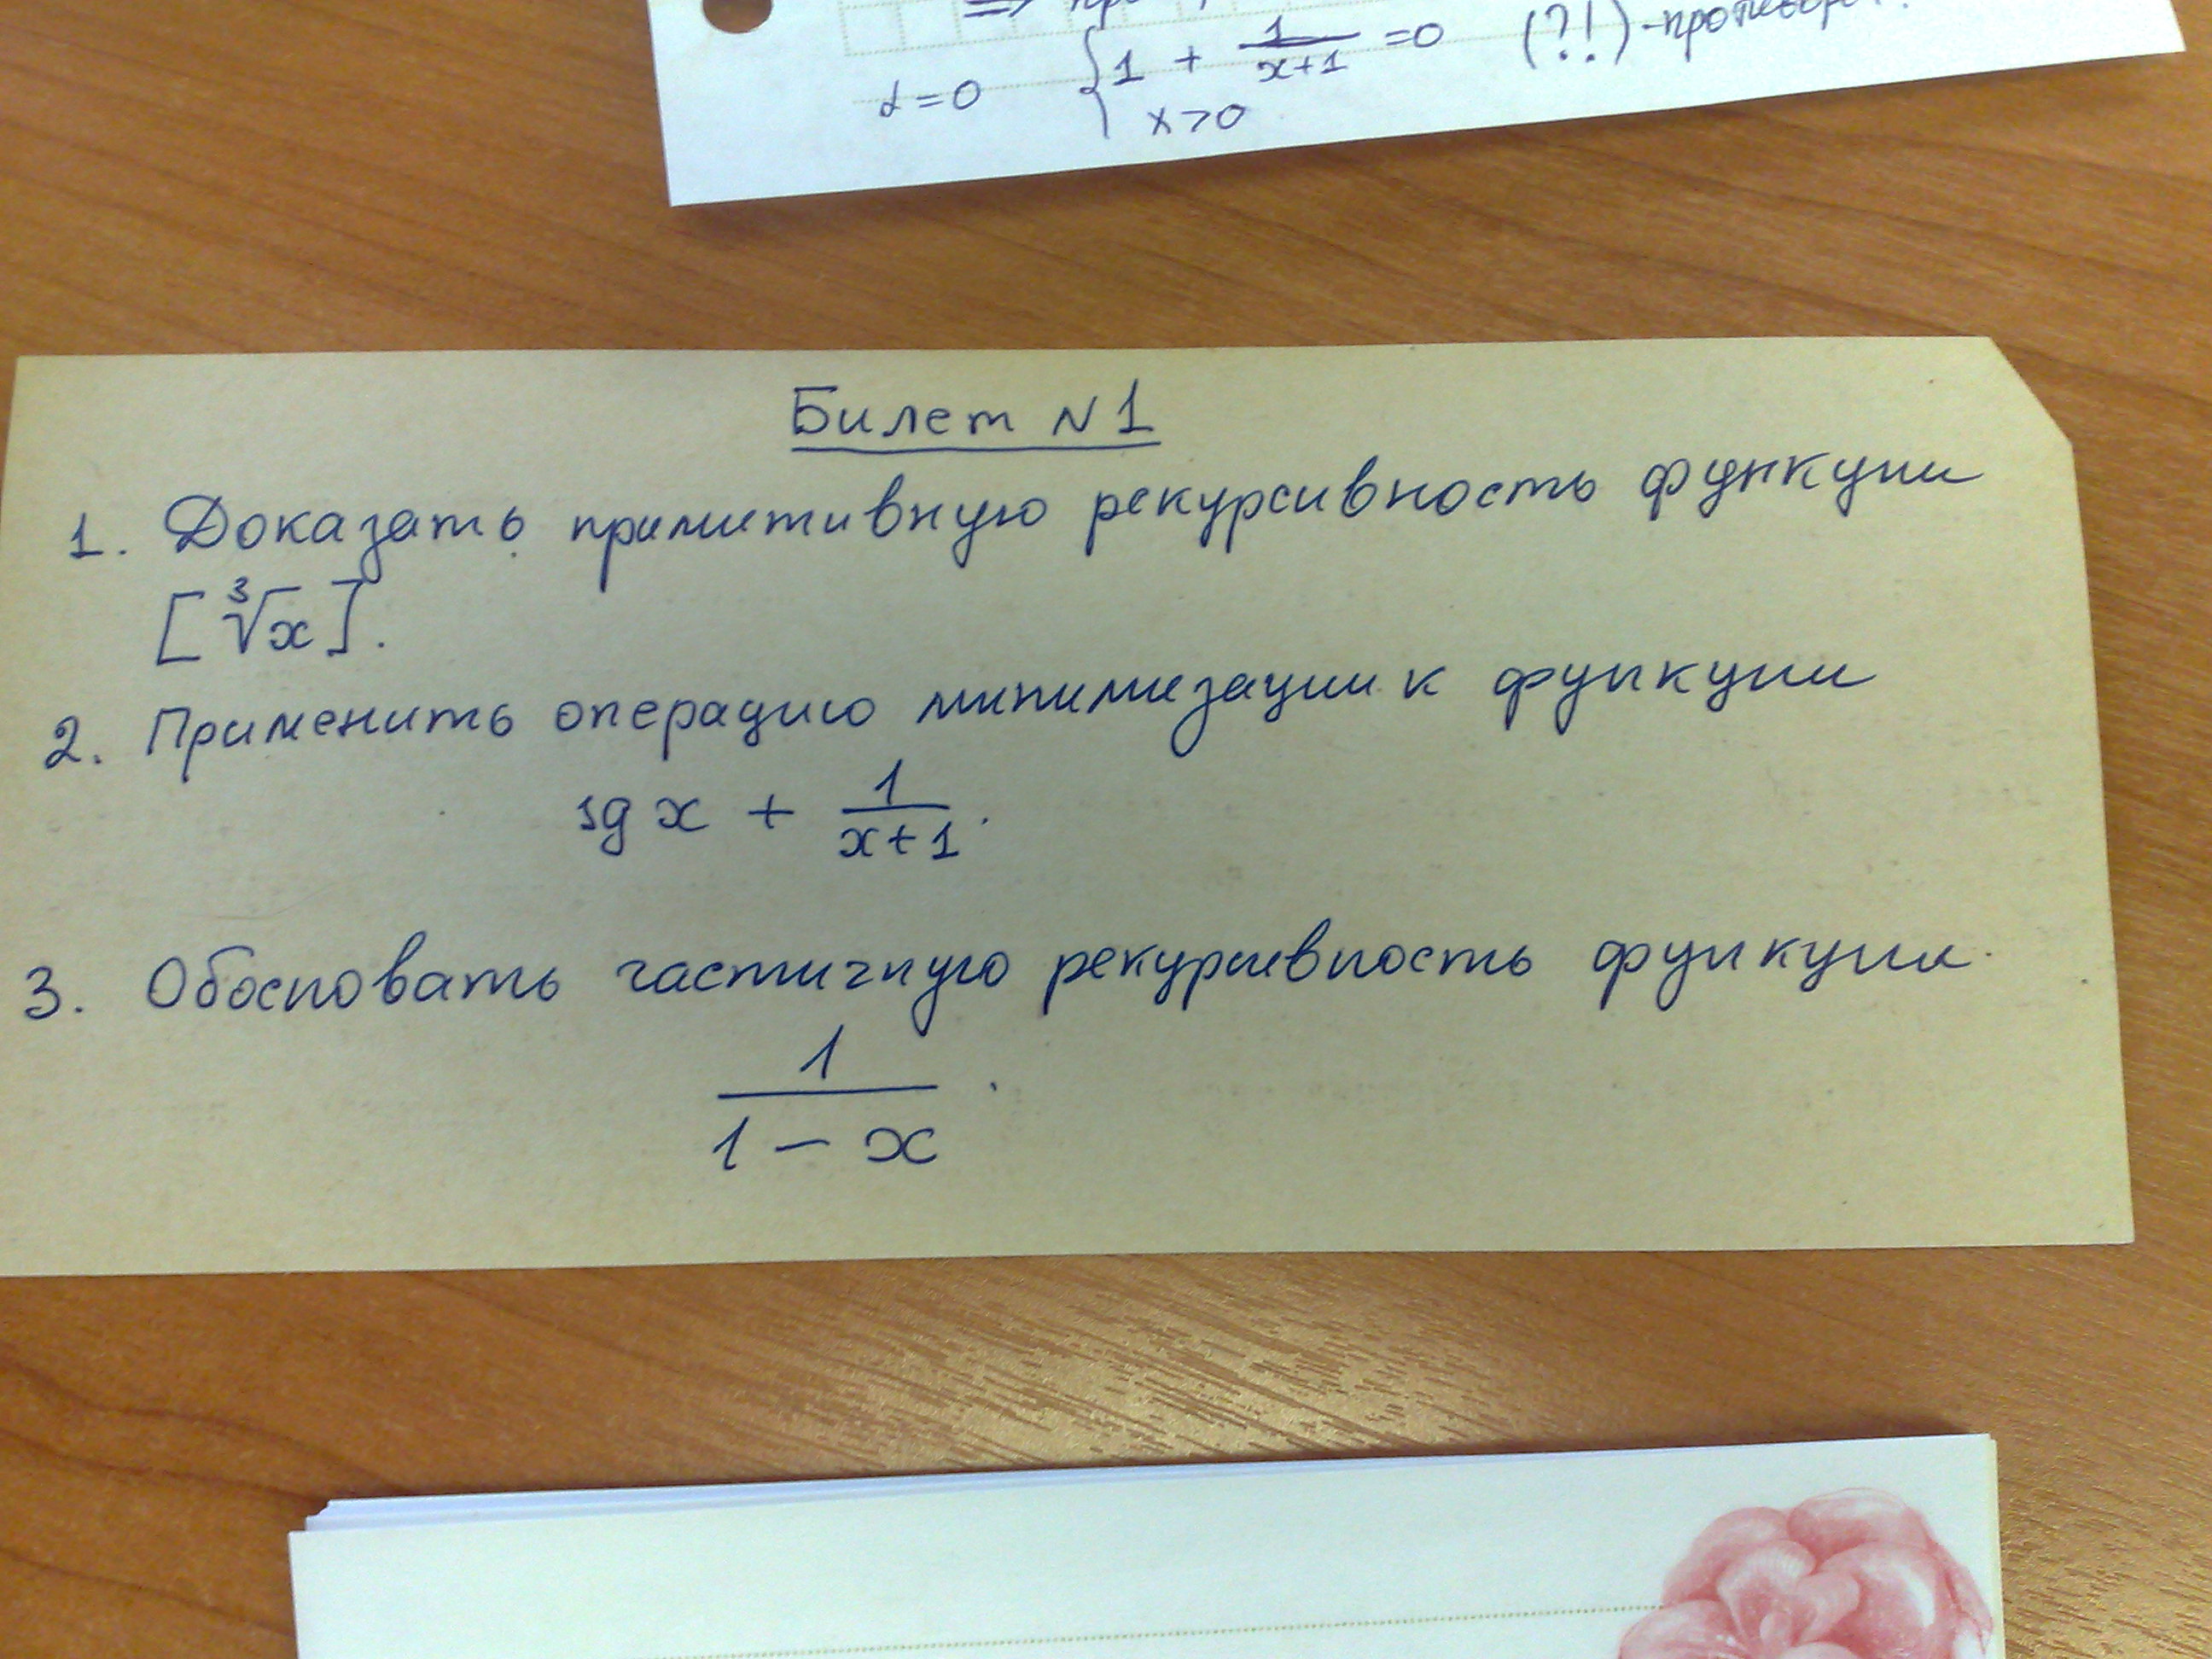 α=0 { 1 + 1/(x+1) =0 (?!)
x>0
Билет N1
1. Доказать примитивную рекурсивность функции
[∛x].
2. Применить операцию минимизации к функции
sg x + 1/(x+1).
3. Обосновать частичную рекурсивность функции
1/(1-x).